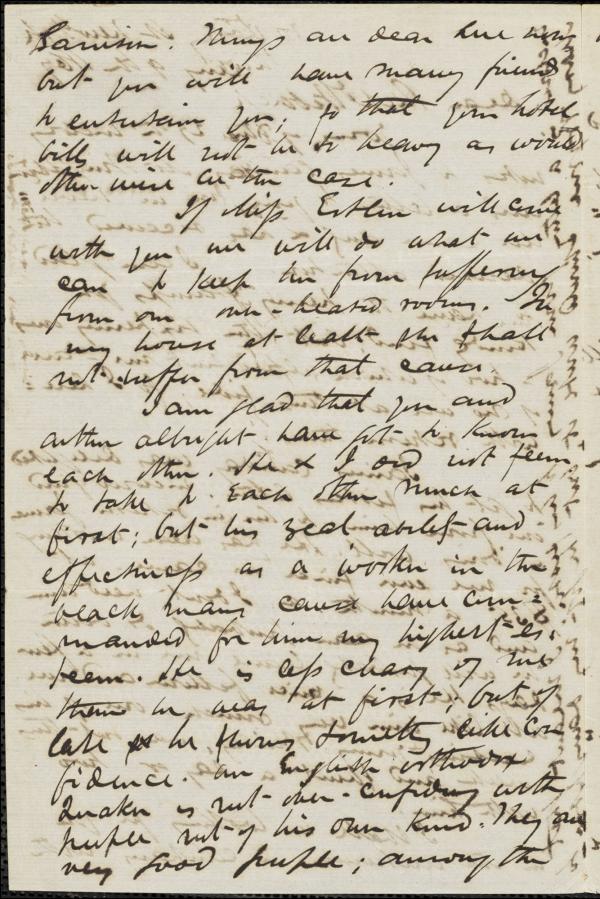 Garrison. Things are dear here now
but you will have many friends
to entertain you; so that your hotel
bills will not be so heavy as would
otherwise be the case.
If Miss Estlin will come
with you we will do what we
can to keep her from suffering
from our over-heated rooms. In
my house at least she shall
not suffer from that cause.
I am glad that you and
Arthur Albright have got to know
each other. He & I did not seem
to take to each other much at
first; but his zeal ability and
effectiveness as a worker in the
black mans cause have com=
manded for him my highest es=
teem. He is less chary of me
than he was at first; but of
late he shows something like con
fidence. An English orthodox
Quaker is not over-confiding with
people not of his own kind. They are
very good people; among the